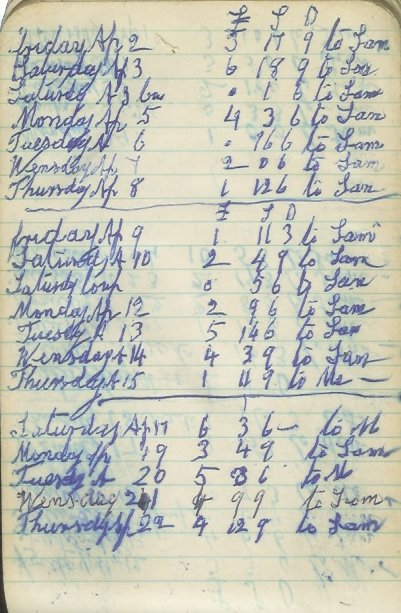 £ S D
Friday Ap 2 5 17 9 to Sam
Saturday A 3 6 18 9 to Sam
Saturdy A 3 0 1 6 to Sam
Monday Ap 5 4 3 6 to Sam
Tuesday A 6 0 16 6 to Sam
Wensday Ap 7 2 0 6 to Sam
Thursday Ap 8 1 12 6 to Sam
£ S D
Friday Ap 9 1 11 3 to Sam
Saturday A 10 2 4 9 to Sam
Saturdy 0 5 6 to Sam
Monday Ap 12 2 9 6 to Sam
Tuesdy A 13 5 14 6 to Sam
Wensday A 14 4 3 9 to Sam
Thursday A 15 1 11 9 to Me —
Saturday Ap 17 6 3 6 — to M
Monday Ap 19 3 4 9 to Sam
Tuesdy A 20 5 3 6 to M
Wensdag 21 4 9 9 to Sam
Thursday Ap 22 4 12 9 to Sam